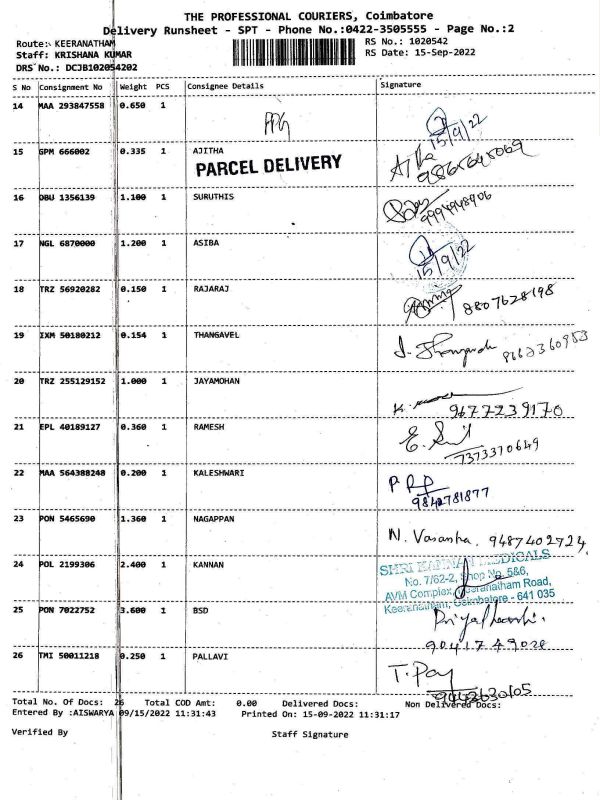 THE PROFESSIONAL COURIERS, Coimbatore
Delivery Runsheet - SPT - Phone No.:0422-3505555 - Page No.:2
Route: KEERANATHAM RS No.: 1020542
Staff: KRISHANA KUMAR RS Date: 15-Sep-2022
DRS No.: DCJB102054202
S No Consignment No Weight PCS Consignee Details Signature
14 MAA 293847558 0.650 1
15/9/22
15 GPM 666002 0.335 1 AJITHA
PARCEL DELIVERY
9865645069
16 DBU 1356139 1.100 1 SURUTHIS
9994948906
17 NGL 6870000 1.200 1 ASIBA
15/9/22
18 TRZ 56920282 0.150 1 RAJARAJ
8807628198
19 IXM 50180212 0.154 1 THANGAVEL
20 TRZ 255129152 1.000 1 JAYAMOHAN
9677239170
21 EPL 40189127 0.360 1 RAMESH
7373370649
22 MAA 564388248 0.200 1 KALESHWARI
9842781877
23 PON 5465690 1.360 1 NAGAPPAN
N. Vasantha. 9487402724
24 POL 2199306 2.400 1 KANNAN
SHRI KANNAN MEDICALS
No. 7/62-2, Shop No. 5&6,
AVM Complex, Keeranatham Road,
Keeranatham, Coimbatore - 641 035
25 PON 7022752 3.600 1 BSD
26 TMI 50011218 0.250 1 PALLAVI
Total No. Of Docs: 26 Total COD Amt: 0.00 Delivered Docs: Non Delivered Docs:
Entered By :AISWARYA 09/15/2022 11:31:43 Printed On: 15-09-2022 11:31:17
Verified By Staff Signature